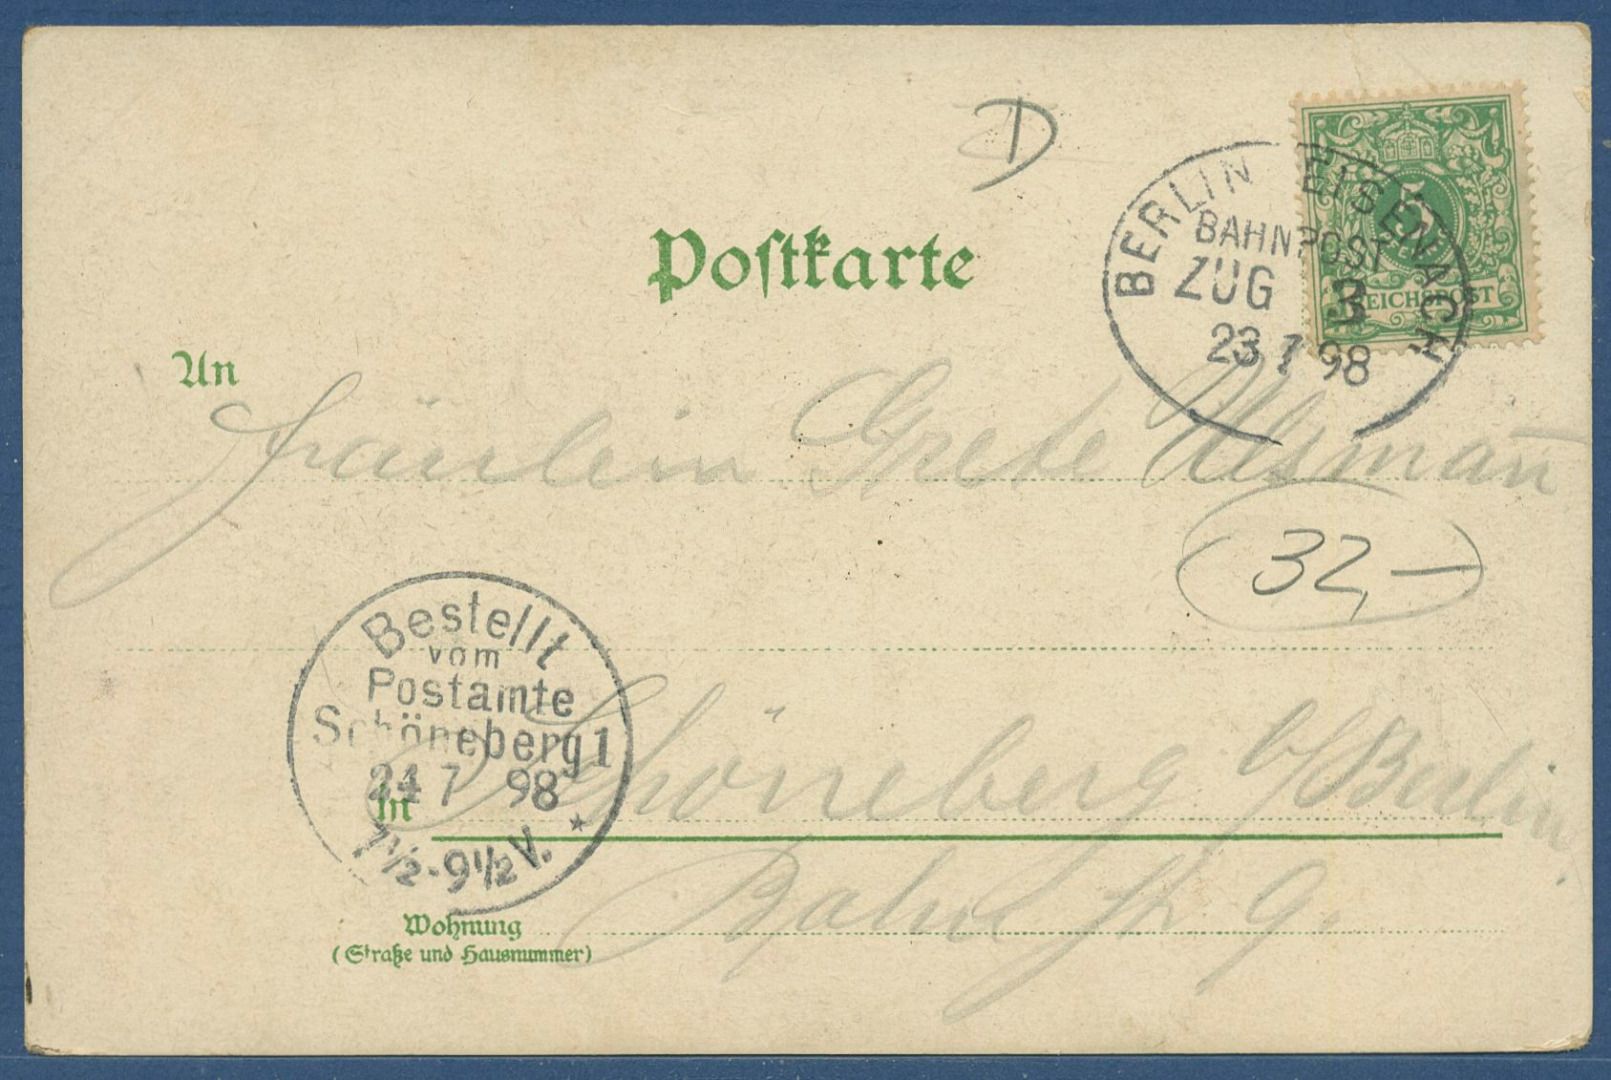 D
BERLIN EISENACH
BAHNPOST
ZUG 3
23 7 98
5
REICHSPOST
Postkarte
An
Fräulein Grete Ulsmañ
32,-
Bestellt
vom
Postamte
Schöneberg 1
24 7 98
7½-9½ V.
In Schöneberg b/Berlin
Wohnung Bahn str 9.
(Straße und Hausnummer)